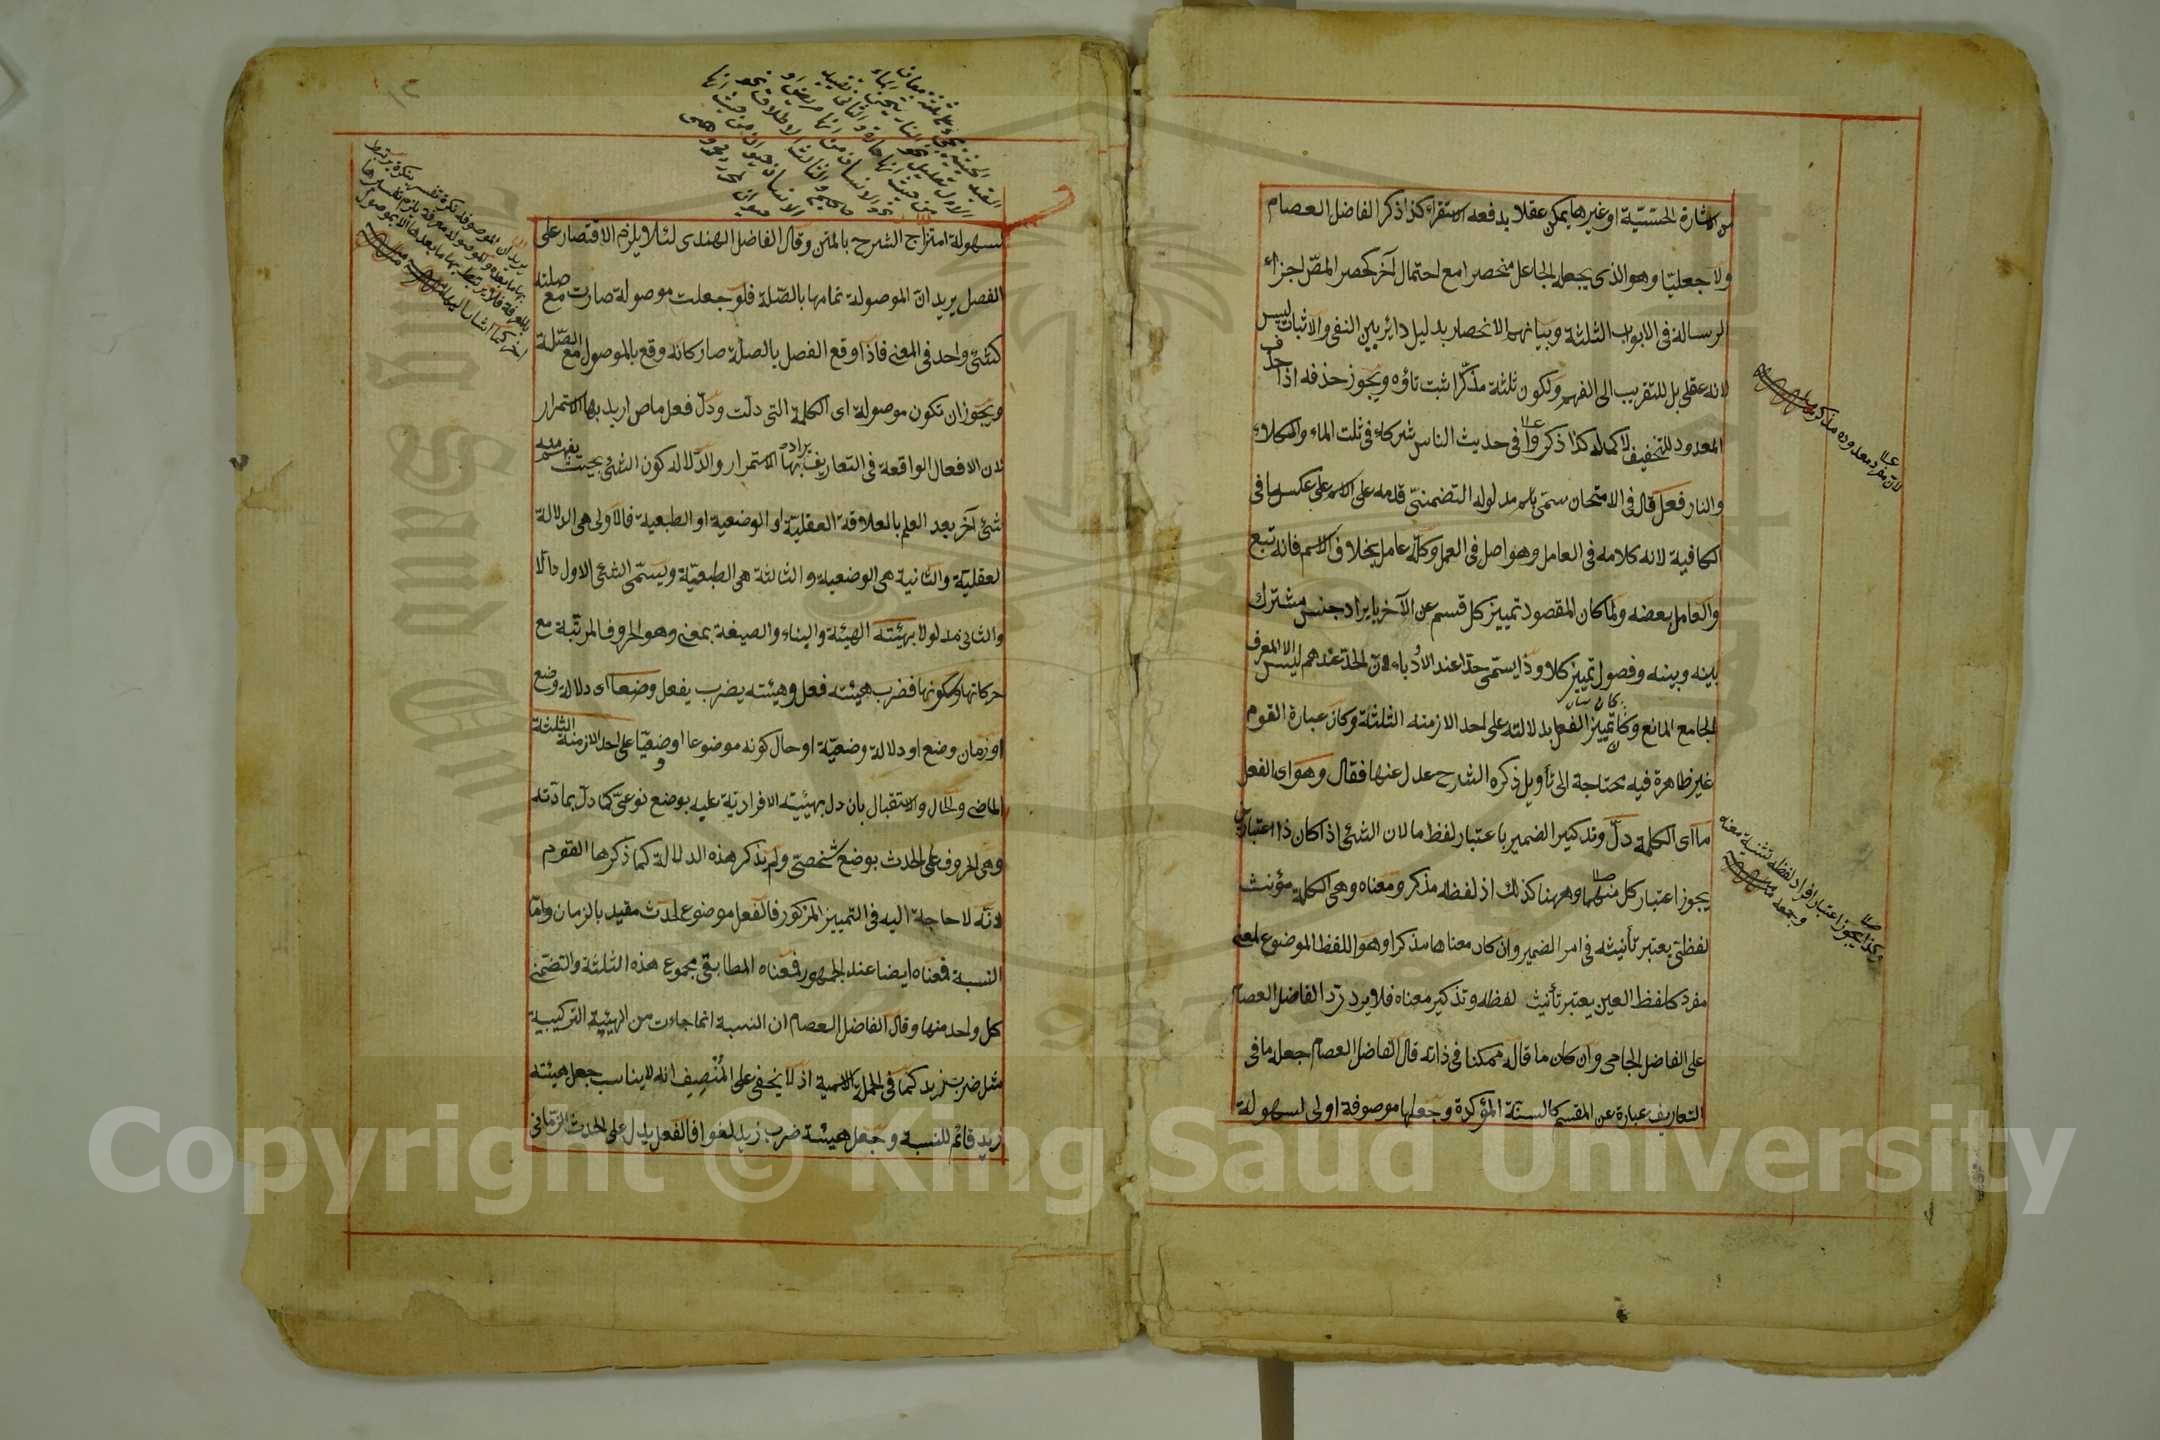 من الاشارة الحسّيّة او غيرها يمكن عقلا يدفعه الاستقراء كذا ذكر الفاضل العصام
ولا جعليّا وهو الذى يجعله الجاعل منحصرا مع احتمال آخر كحصر المصّ اجزاء
الرسالة فى الابواب الثلثة وبيانهم الانحصار بدليل دائر بين النفى والاثبات ليس
لانه عقلى بل للتقريب الى الفهم ولكون ثلثة مذكّرا ثبت تاؤه ويجوز حذفه اذا حذف
المعدود للتخفيف لا كماله كذا ذكروا فى حديث الناس شركاء فى ثلث الماء والكلاء
والنار فعل قال فى الامتحان سمّى باسم مدلوله التضمنىّ قدمه على الاسم على عكس ما فى
الكافية لانه كلامه فى العامل وهو اصل فى العمل وكلّه عامل بخلاف الاسم فانه تبع
والعامل بعضه ولما كان المقصود تمييز كل قسم عن الآخر بايراد جنس مشترك
بينه وبينه وفصول تميّز كلا وذا يسمّى حدّا عند الادباء لانّ الحد عندهم ليس الا المعرف
الجامع المانع وكان تمييز الفعل بدلالته على احد الازمنه الثلثة وكان عبارة القوم
غير ظاهرة فيه محتاجة الى تأويل ذكره الشارح عدل عنها فقال وهو اى الفعل
ما اى الكلمة دلّ وتذكير الضمير باعتبار لفظ ما لان الشئ اذا كان ذا اعتبارين
يجوز اعتبار كل منهما وههنا كذلك اذ لفظه مذكر ومعناه وهى الكلمة مؤنث
لفظىّ يعتبر تأنيثه فى امر الضمير وان كان معناها مذكرا وهو اللفظ الموضوع لمعنى
مفرد كلفظ العين يعتبر تأنيث لفظه وتذكير معناه فلا يرد ردّ الفاضل العصام
على الفاضل الجامى وان كان ما قاله ممكنا فى ذاته قال الفاضل العصام جعله ما فى
التعاريف عبارة عن المقسم كالسنّة المؤكدة وجعلها موصوفة اولى لسهولة
لانّه مفرد معدوده مذكور
وكذا يجوز اعتبار افراد لفظه تثنية معنه
وجمعه
لسهولة امتزاج الشرح بالمتن وقال الفاضل الهندى لئلا يلزم الاقتصار على
الفصل يريد انّ الموصولة تمامها بالصّلة فلو جعلت موصولة صارت مع صلته
كشئ واحد فى المعنى فاذا وقع الفصل بالصلة صار كانه وقع بالموصول مع الصّلة
ويجوز ان تكون موصولة اى الكلمة التى دلّت ودلّ فعل ماض اريد بها الاستمرار
لان الافعال الواقعة فى التعاريف يراد بها الاستمرار والدّلالة كون الشئ بحيث يفهم منه
شئ آخر بعد العلم بالعلاقة العقليّة او الوضعية او الطبعية فالاولى هى الدلالة
العقليّة والثانية هى الوضعية والثالثة هى الطبعيّة ويسمّى الشئ الاول دالّا
والثانى مدلولا بهيئته الهيئة والبناء والصيغة بمعنى وهو الحروف المرتّبة مع
حركاتها وسكونها فضرب هيئته فعل وهيئته يضرب يفعل وضعا اى دلالة وضع
او زمان وضع او دلالة وضعيّة او حال كونه موضوعا او وضعيّا على احد الازمنة الثلثة
الماضى والحال والاستقبال بان دل بهيئته الافراديّة عليه بوضع نوعىّ كما دلّ بمادّته
وهى الحروف على الحدث بوضع شخصىّ ولم يذكر هذه الدلالة كما ذكرها القوم
لانّه لا حاجة اليه فى التمييز المذكور فالفعل موضوع لحدث مقيد بالزمان وامّا
النسبة فمعناه ايضا عند الجمهور فمعناه المطابقى مجموع هذه الثلثة والتضمّنى
كل واحد منها وقال الفاضل العصام ان النسبة انما جاءت من الهيئة التركيبية
مثل ضرب زيد كما فى الجملة الاسمية اذ لا يخفى على المُنْصِف انه لا يناسب جعل هيئته
زيد قائم للنسبة وجعل هيئة ضرب زيد لغوا فالفعل يدل على الحدث الزمانى
Copyright © King Saud University